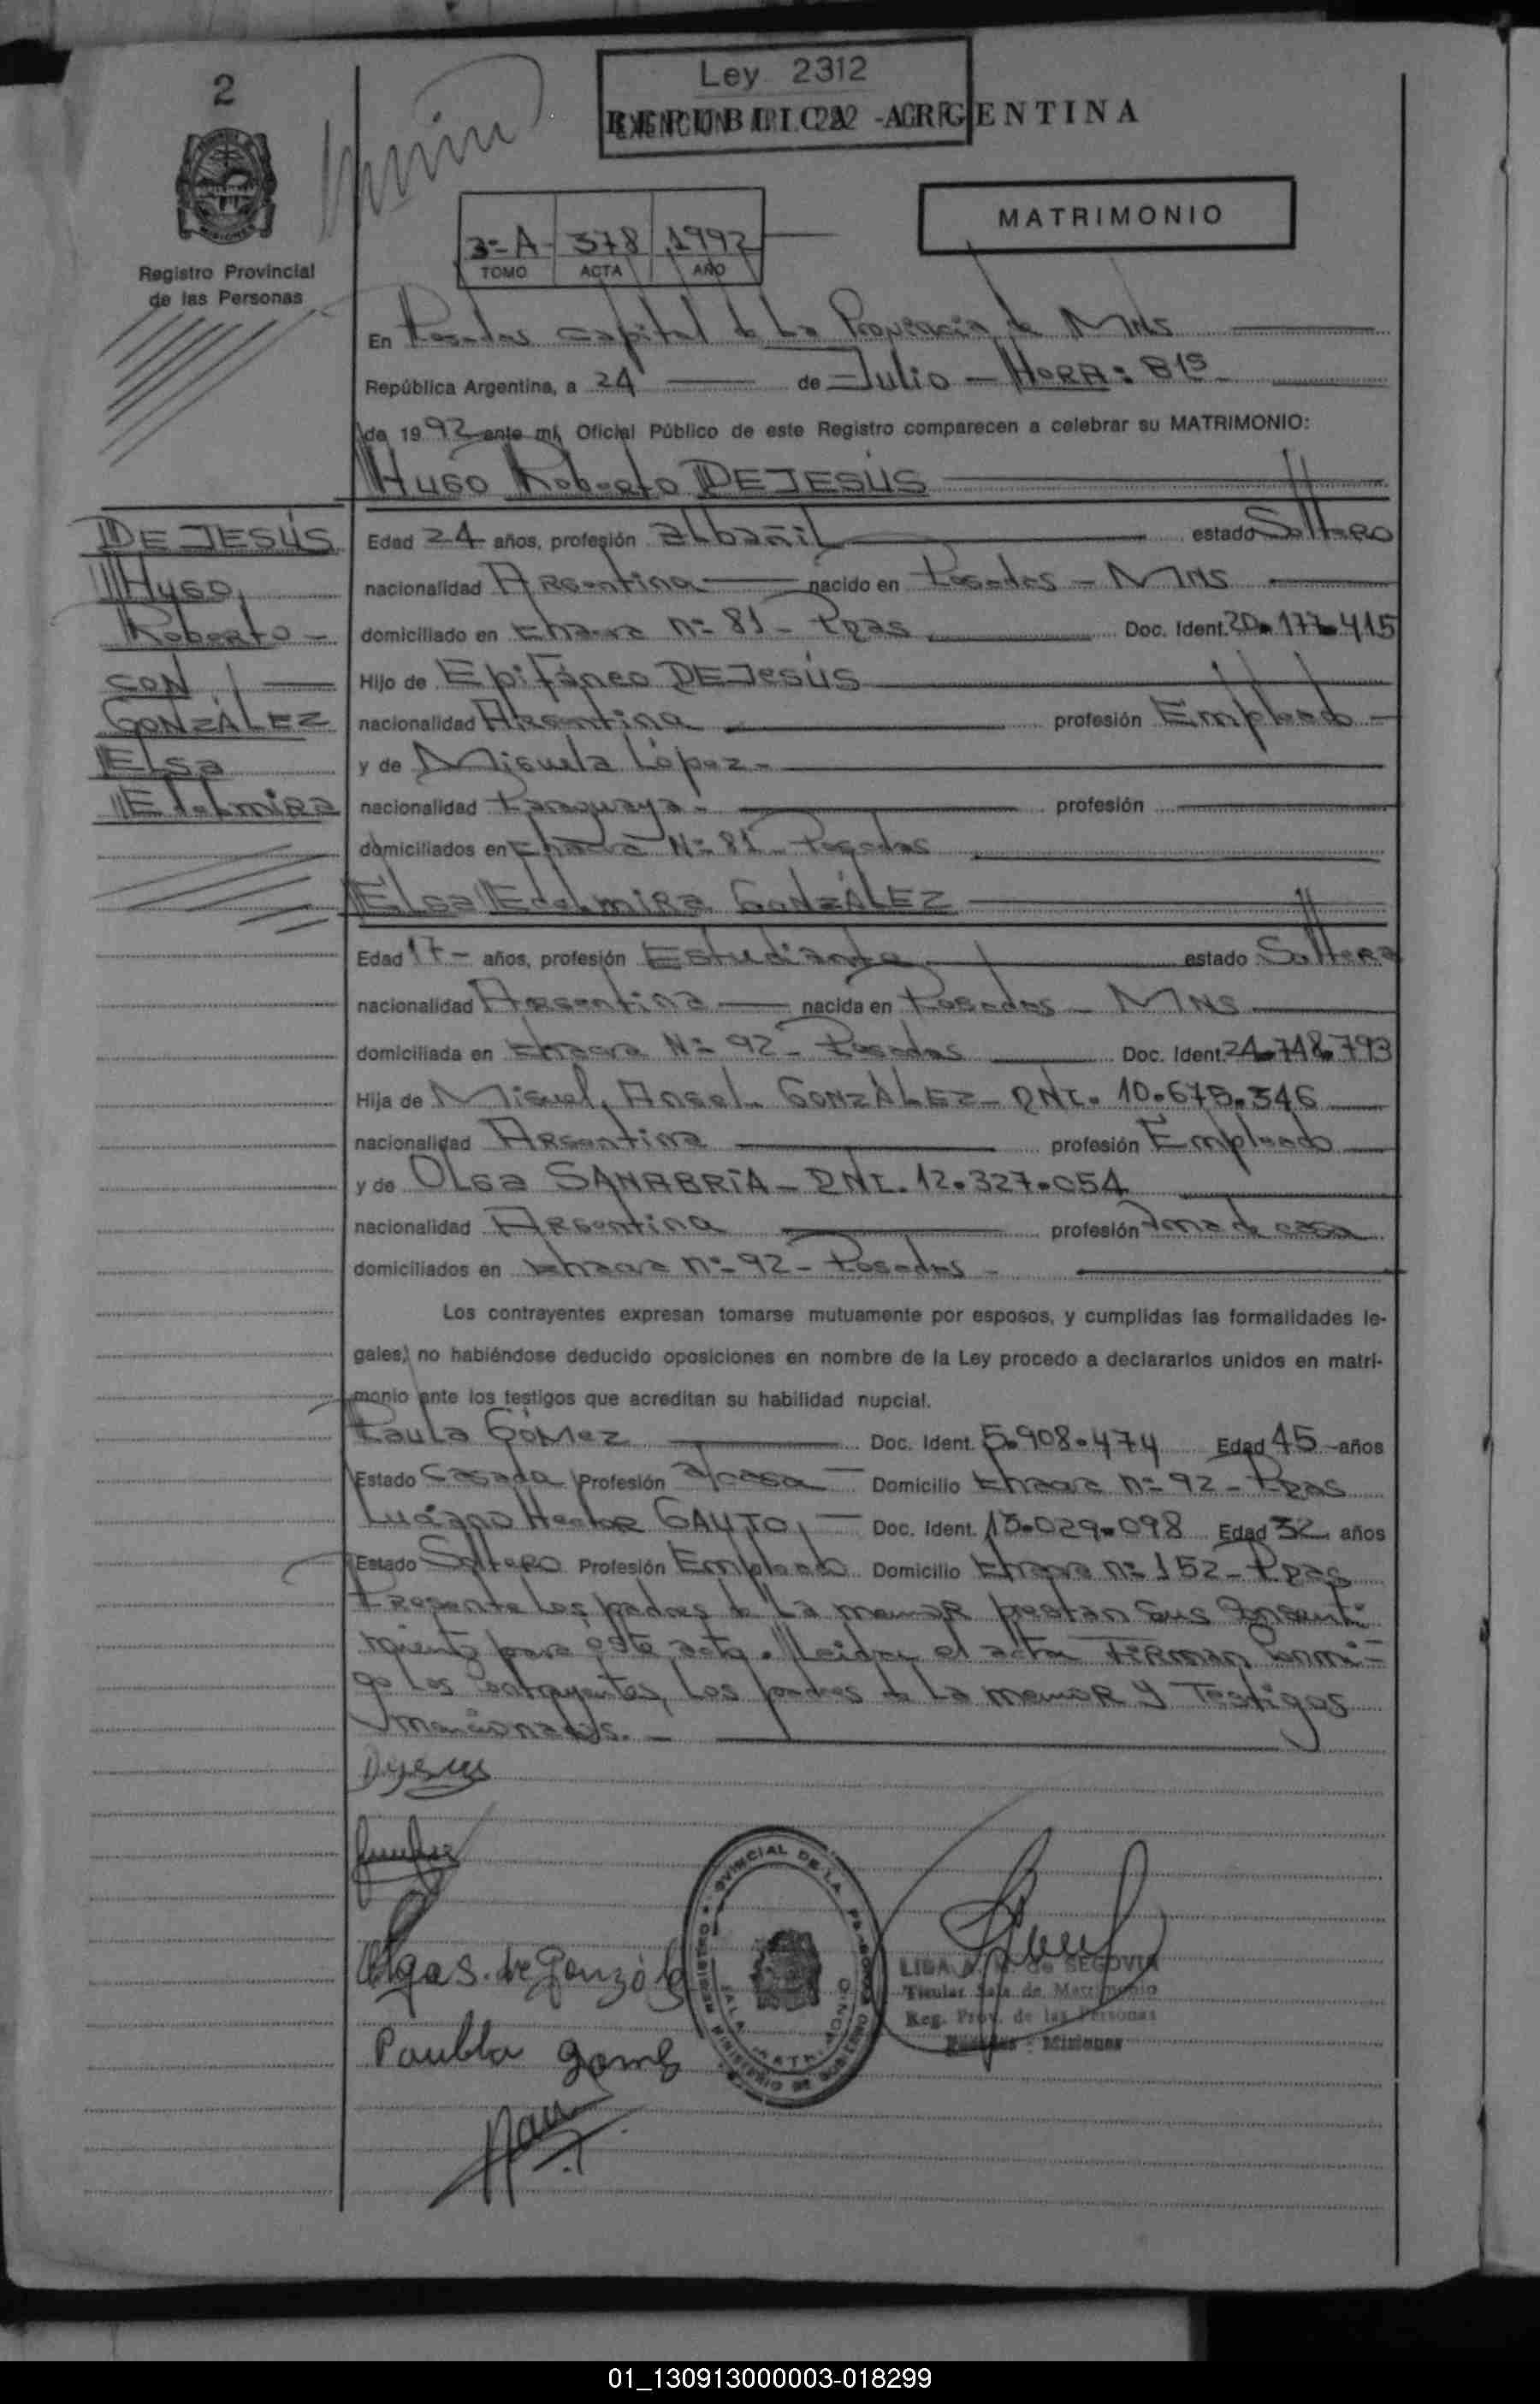 2
Ley 2312
REPUBLICA ARGENTINA
MATRIMONIO
3=A- 378 1992
TOMO ACTA AÑO
Registro Provincial
de las Personas
En Posadas Capital de La Provincia de Mns
República Argentina, a 24 de Julio - HORA: 815
de 1992 ante mí, Oficial Público de este Registro comparecen a celebrar su MATRIMONIO:
Hugo Roberto DE JESÚS
DE JESÚS
Hugo
Roberto -
CON
GONZÁLEZ
Elsa
Edelmira
Edad 24 años, profesión albañil estado Soltero
nacionalidad Argentina nacido en Posadas - Mns
domiciliado en Chacra Nº 81 - Pdas Doc. Ident. 20.177.415
Hijo de Epifáneo DE JESÚS
nacionalidad Argentina profesión Empleado -
y de Miguela López -
nacionalidad Paraguaya - profesión
domiciliados en Chacra Nº 81 - Posadas
Elsa Edelmira GONZÁLEZ
Edad 17 - años, profesión Estudiante estado Soltera
nacionalidad Argentina nacida en Posadas - MNS
domiciliada en Chacra Nº 92 - Posadas Doc. Ident. 24.748.793
Hija de Miguel Angel GONZÁLEZ - DNI. 10.675.346
nacionalidad Argentina profesión Empleado
y de Olga SANABRIA - DNI. 12.327.054
nacionalidad Argentina profesión Ama de casa
domiciliados en Chacra Nº 92 - Posadas -
Los contrayentes expresan tomarse mutuamente por esposos, y cumplidas las formalidades le-
gales, no habiéndose deducido oposiciones en nombre de la Ley procedo a declararlos unidos en matri-
monio ante los testigos que acreditan su habilidad nupcial.
Paula Gómez Doc. Ident. 5.908.474 Edad 45 - años
Estado Casada Profesión a/casa Domicilio Chacra Nº 92 - Pdas
Luciano Hector GAUTO, Doc. Ident. 13.029.098 Edad 32 años
Estado Soltero Profesión Empleado Domicilio Chacra Nº 152 - Pdas
Presente Los padres de La menor prestan sus Consenti-
miento para este acto. Leída el acta Firman Conmi-
go Los Contrayentes, Los padres de La menor y Testigos
mencionados. -
Dejesus
Olga S. de Gonzál
Paubla gomez
REGISTRO PROVINCIAL DE LAS PERSONAS
MINISTERIO DE GOBIERNO
SALA MATRIMONIO
de SEGOVIA
Titular Sala de Matrimonio
Reg. Prov. de las Personas
Posadas - Misiones
01_130913000003-018299